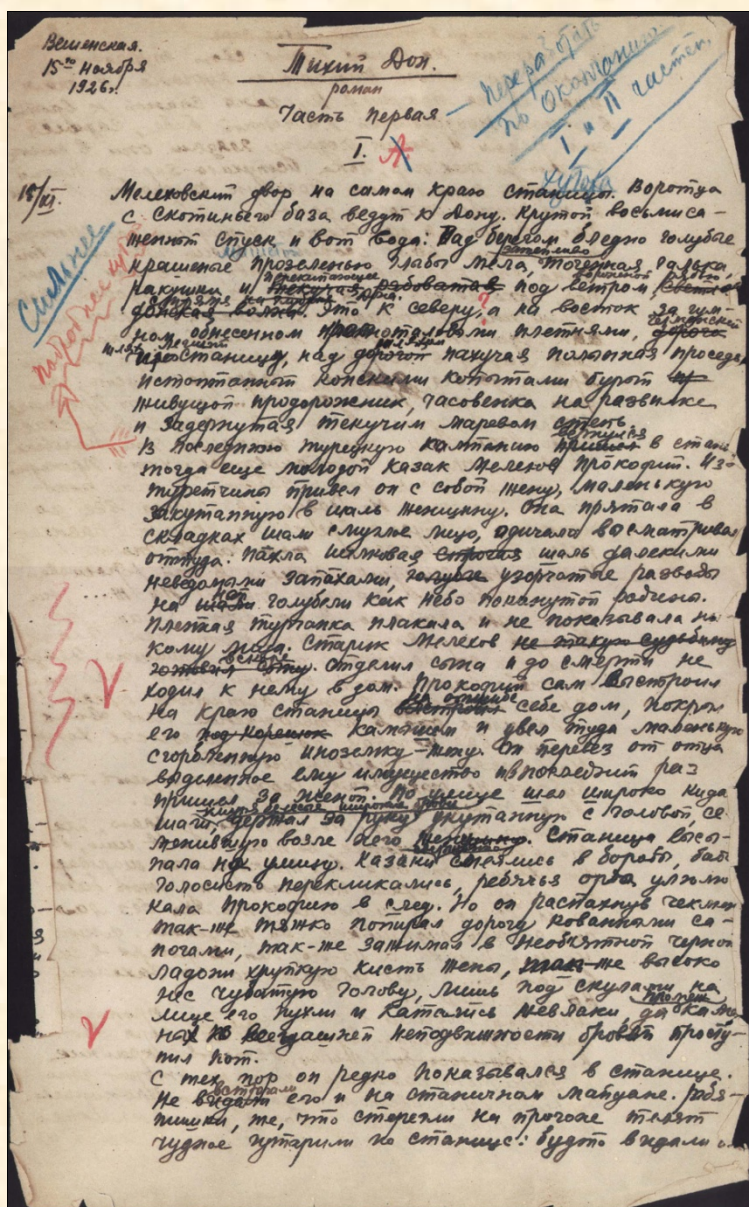 Вешенская.
15го ноября
1926г.
Тихий Дон.
роман
Часть первая
I.
Переработать
по окончанию
I и II частей
хутора
15/XI.
Сильнее
подробнее
Мелеховский двор на самом краю станицы. Воротца
с скотиньего база ведут к Дону. Крутой восьмиса-
женный спуск и вот вода: Над берегом бледно голубые
крашеные прозеленью глыбы мела, точенная галька,
ракушки и под ветром,
Это к северу, а на восток за гум-
ном, обнесенном плетнями,
станицу, над дорогой пахучая полынная проседь,
истоптанный конскими копытами бурый
живущой придорожник, часовенка на развилке
и задернутая текучим маревом степь
В последнюю турецкую кампанию вернулся в стан.
тогда еще молодой казак Мелехов Прокофий. Из
туретчины привел он с собой жену, маленькую
закутанную в шаль женщину. Она прятала в
складках шали смуглое лицо, одичало высматривая
оттуда. Пахла шелковая шаль далекими
неведомыми запахами, узорчатые разводы
на ней голубели как небо покинутой родины.
Пленная турчанка плакала и не показывала ни-
кому лица. Старик Мелехов не такую судьбину
отделил сына и до смерти не
ходил к нему в дом. Прокофий сам выстроил
на краю станицы на отшибе себе дом, покрыл
его камышем и увел туда маленькую
сгорбленную иноземку-жену. Он перевез от отца
выделенное ему имущество и в последний раз
пришел за женой. По улице шел широко кидая
шаги, держал за руку укутанную с головой, се-
менившую возле него. Станица высы-
пала на улицу. Казаки смеялись в бороды, бабы
голосисто перекликались, ребячья орда улюлю-
кала Прокофию в след. Но он распахнув чекмень
так-же тяжко попирал дорогу кованными са-
погами, так-же зажимал в необъятной черной
ладони хрупкую кисть жены, так-же высоко
нес чубатую голову, лишь под скулами на
лице его пухли и катались желваки, да
на неподвижности бровей просту-
пил пот.
С тех пор он редко показывался в станице.
Не видали его и на станичном майдане. Ребя-
тишки, те, что стерегли на прогоне телят
чудное гутарили по станице: будто видали